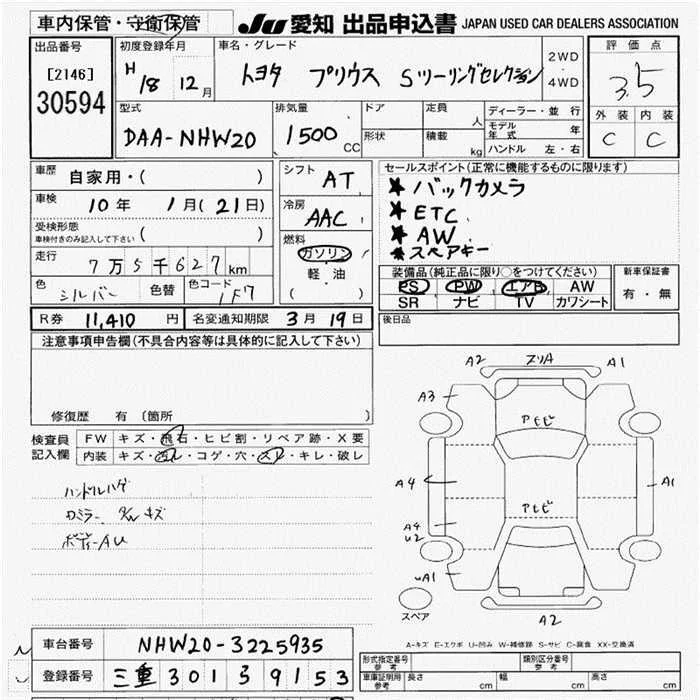 車内保管・守衛保管
JU 愛知 出品申込書 JAPAN USED CAR DEALERS ASSOCIATION
出品番号
[2146]
30594
初度登録年月
H 18 12月
車名・グレード
トヨタ プリウス Sツーリングセレクション
2WD
・
4WD
評価点
3.5
外装 内装
C C
型式
DAA-NHW20
排気量
1500 CC
ドア
形状
定員 人
積載 kg
ディーラー・並行
モデル年式 年
ハンドル 左・右
車歴
自家用・( )
車検
10年 1月(21日)
受検形態
車検付きのみ記入して下さい ( )
走行
7万5千627km
色
シルバー
色替
色コード
1F7
シフト
AT
冷房
AAC
燃料
ガソリン
軽・油
( )
セールスポイント(正常に機能するものに限ります)
★ バックカメラ
★ ETC
★ AW
★ スペアキー
装備品(純正品に限り○をつけてください)
PS PW エアB AW
SR ナビ TV カワシート
新車保証書
有・無
R券 11,410円 名変通知期限 3月19日
後日品
注意事項申告欄(不具合内容等は具体的に記入して下さい)
修復歴 有(箇所 )
検査員
記入欄
FW キズ・飛石・ヒビ割・リペア跡・X要
内装 キズ・汚レ・コゲ・穴・スレ・キレ・破レ
ハンドルハゲ
ボディーAU
A2 スリA A1
A3
アモビ
A4
A1
アモビ
A4
U2
UA1
スペア
A2
A-キズ E-エクボ U-凹み W-補修跡 S-サビ C-腐食 XX-交換済
車台番号 NHW20-3225935
登録番号 三重 301 ヲ 9153
形式指定番号
参考
類別区分番号
参考
車庫証明用
参考
長さ cm 幅 cm 高さ cm